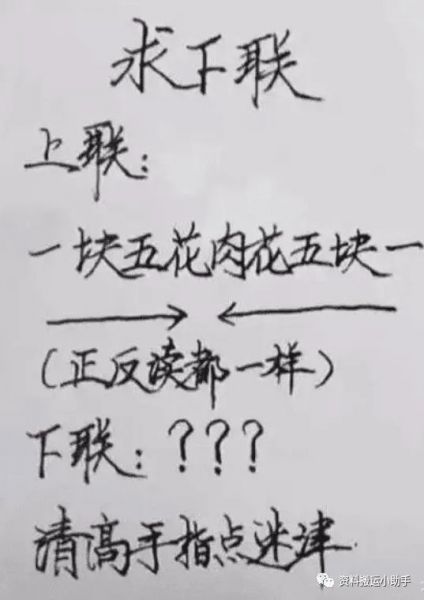 求下联
上联：
一块五花肉花五块一
（正反读都一样）
下联：？？？
请高手指点迷津
资料搬运小助手